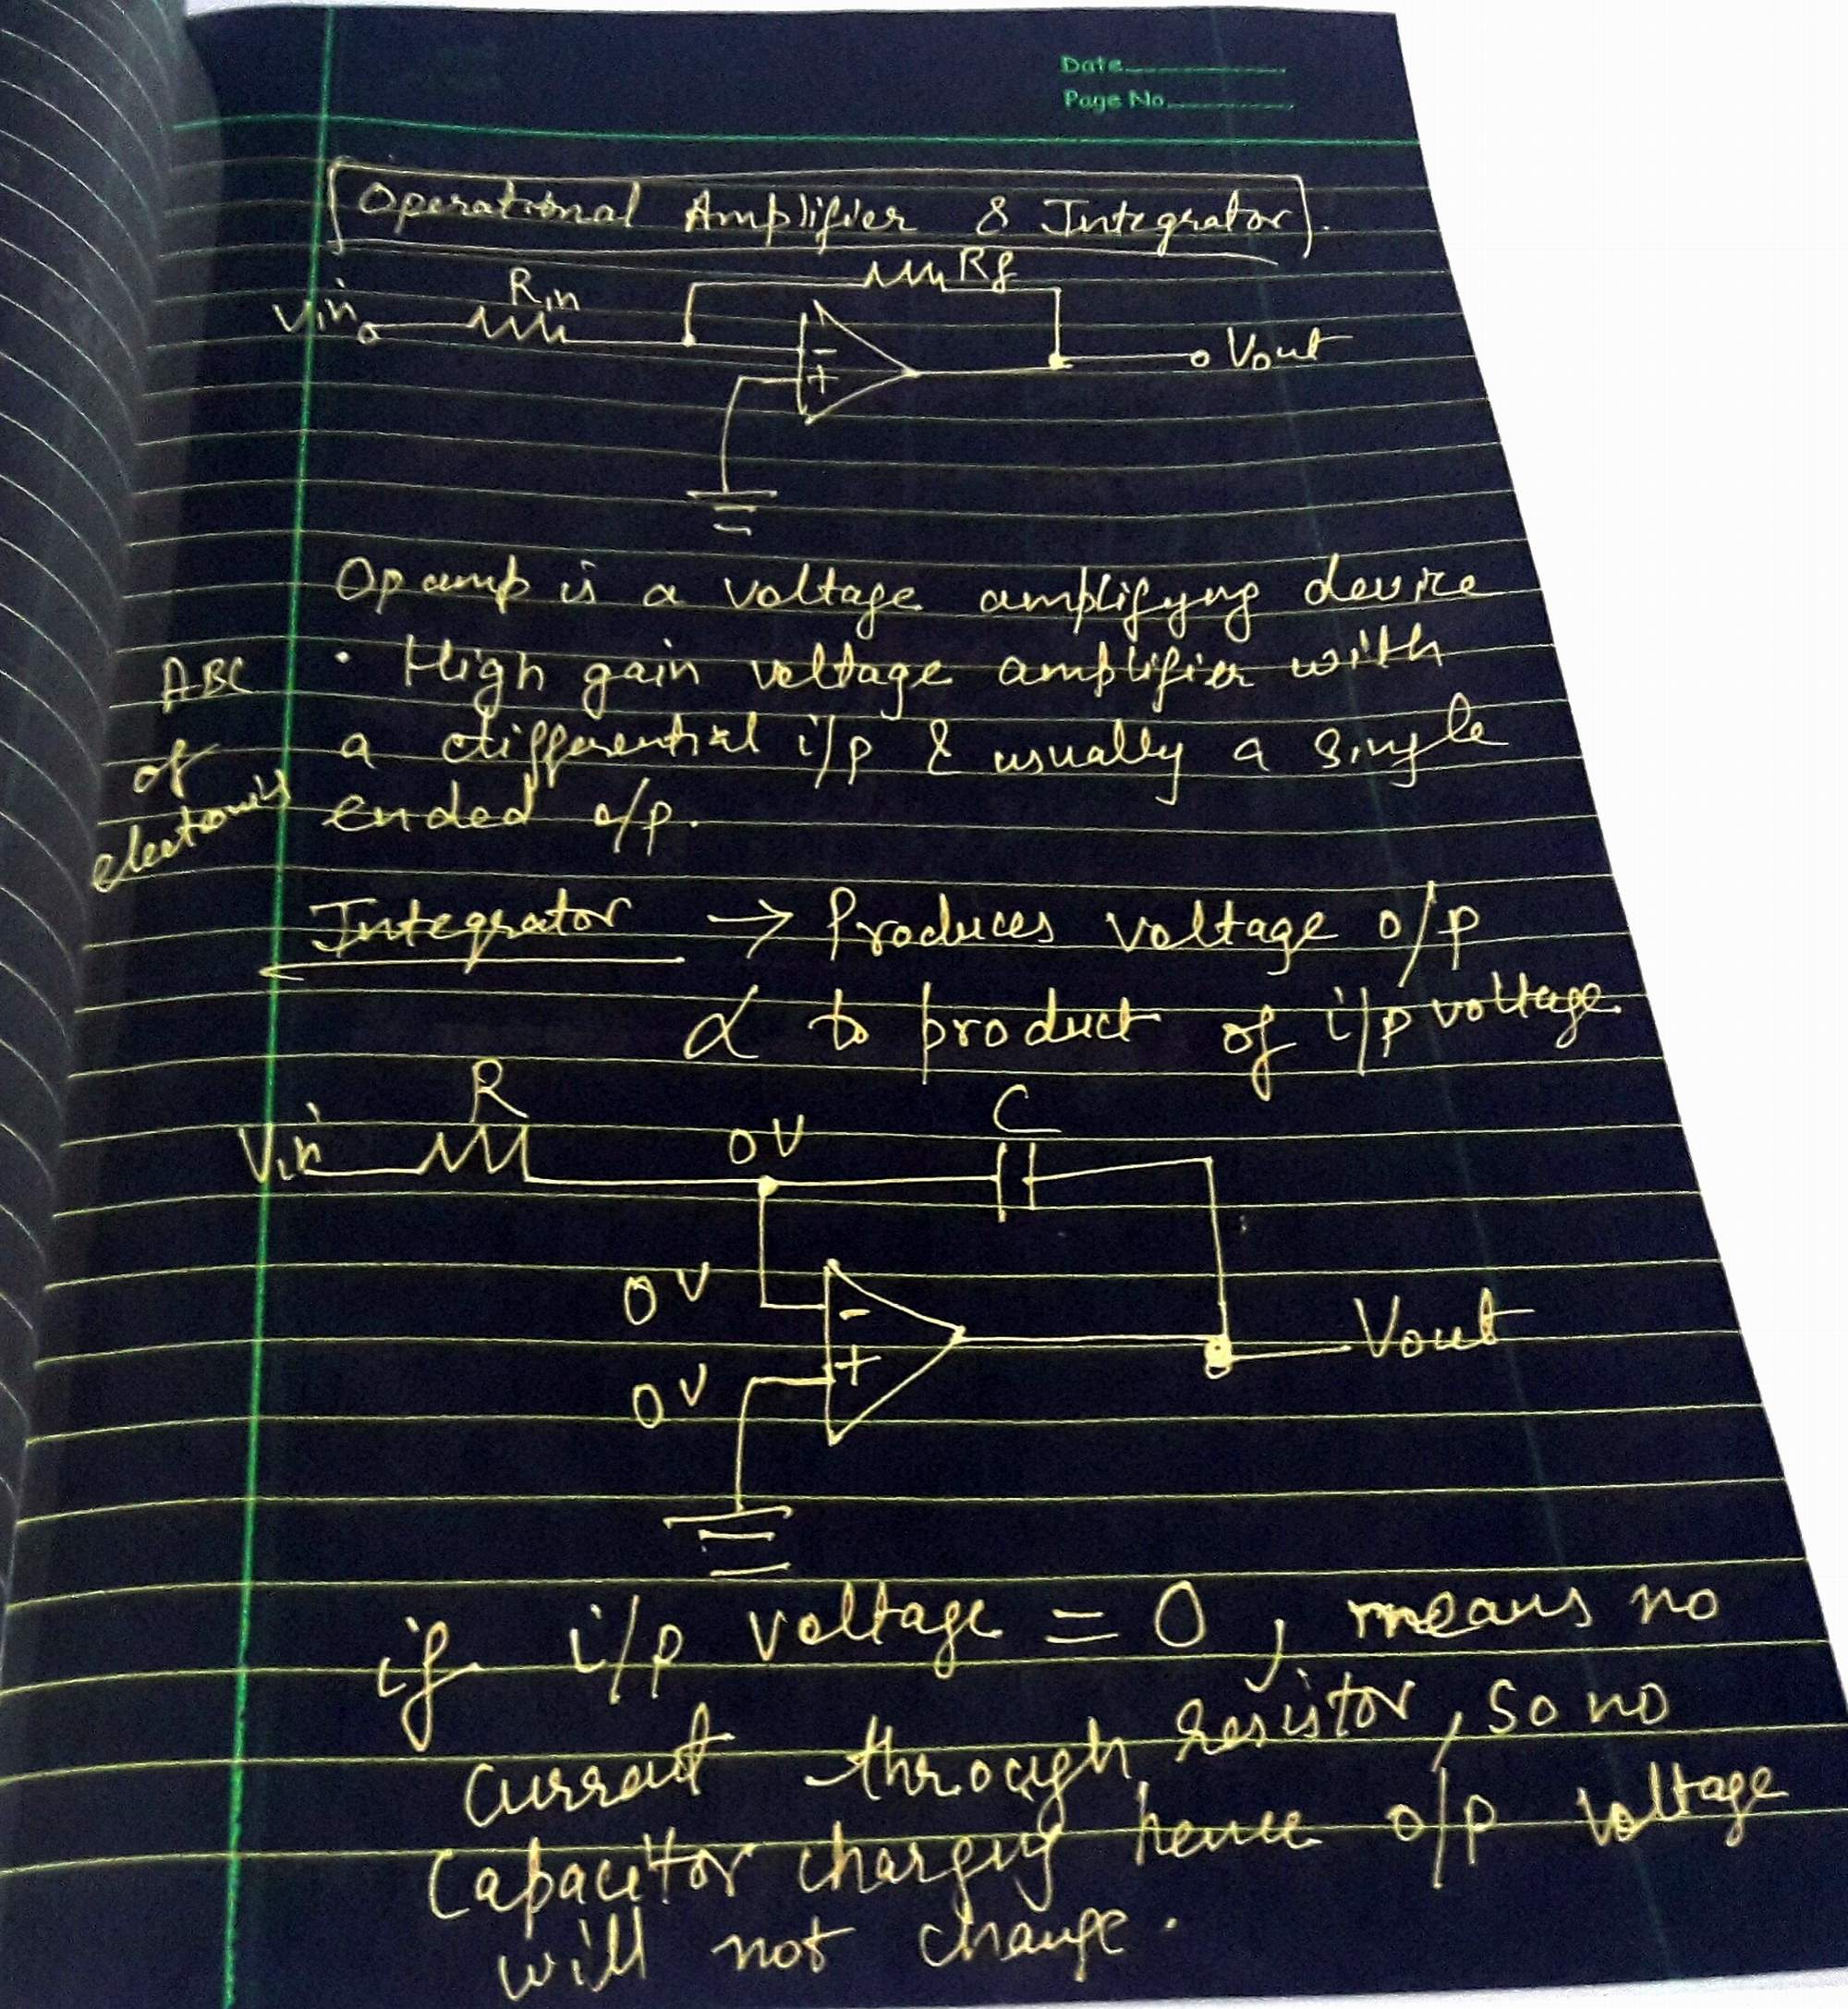 Date
Page No.
Operational Amplifier & Integrator.
Rf
Rin
Vin
Vout
-
+
Op amp is a voltage amplifyng device
ABC
• High gain voltage amplifier with
of
a differential i/p & usually a single
electronics
ended o/p.
Integrator → Produces voltage o/p
α to product of i/p voltage
R
C
Vin
0V
0V
-
Vout
0V
+
if i/p voltage = 0, means no
current through resistor, so no
Capacitor charging hence o/p voltage
will not change.